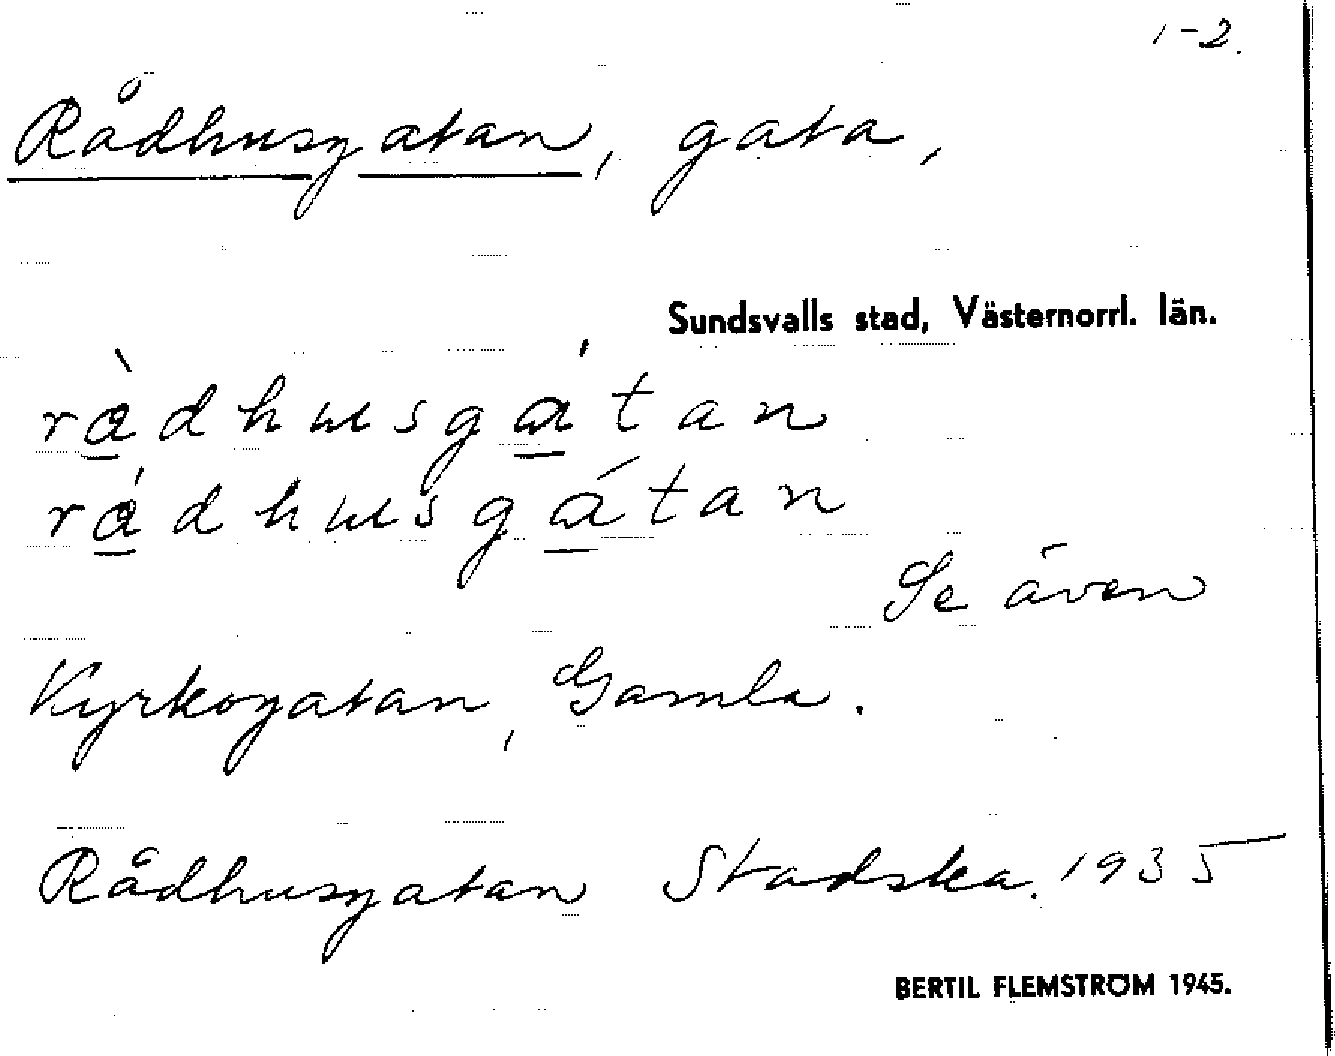 1-2.
Rådhusgatan, gata,
Sundsvalls stad, Västernorrl. län.
rà̱dhusgá̱tan
rá̱dhusgá̱tan
Se även
Kyrkogatan, Gamla.
Rådhusgatan Stadska. 1935
BERTIL FLEMSTRÖM 1945.